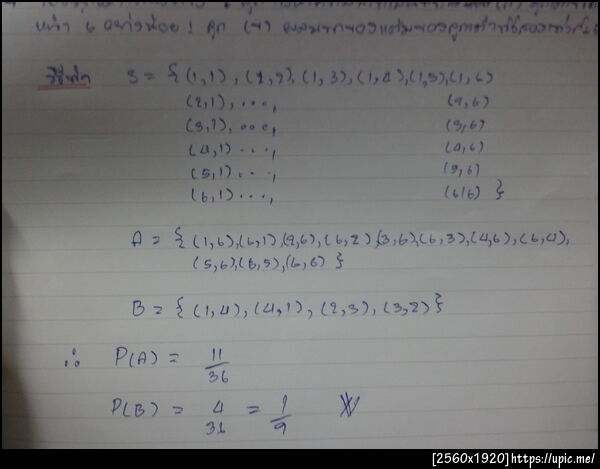 หน้า 6 อย่างน้อย 1 ลูก (ข)
วิธีทำ S = { (1,1), (2,2), (1,3), (1,4), (1,5), (1,6)
(2,1), ..., (2,6)
(3,1), ..., (3,6)
(4,1) ..., (4,6)
(5,1) ..., (5,6)
(6,1) ..., (6,6) }
A = { (1,6), (6,1), (2,6), (6,2), (3,6), (6,3), (4,6), (6,4),
(5,6), (6,5), (6,6) }
B = { (1,4), (4,1), (2,3), (3,2) }
∴ P(A) = 11/36
P(B) = 4/36 = 1/9
[2560x1920]https://upic.me/